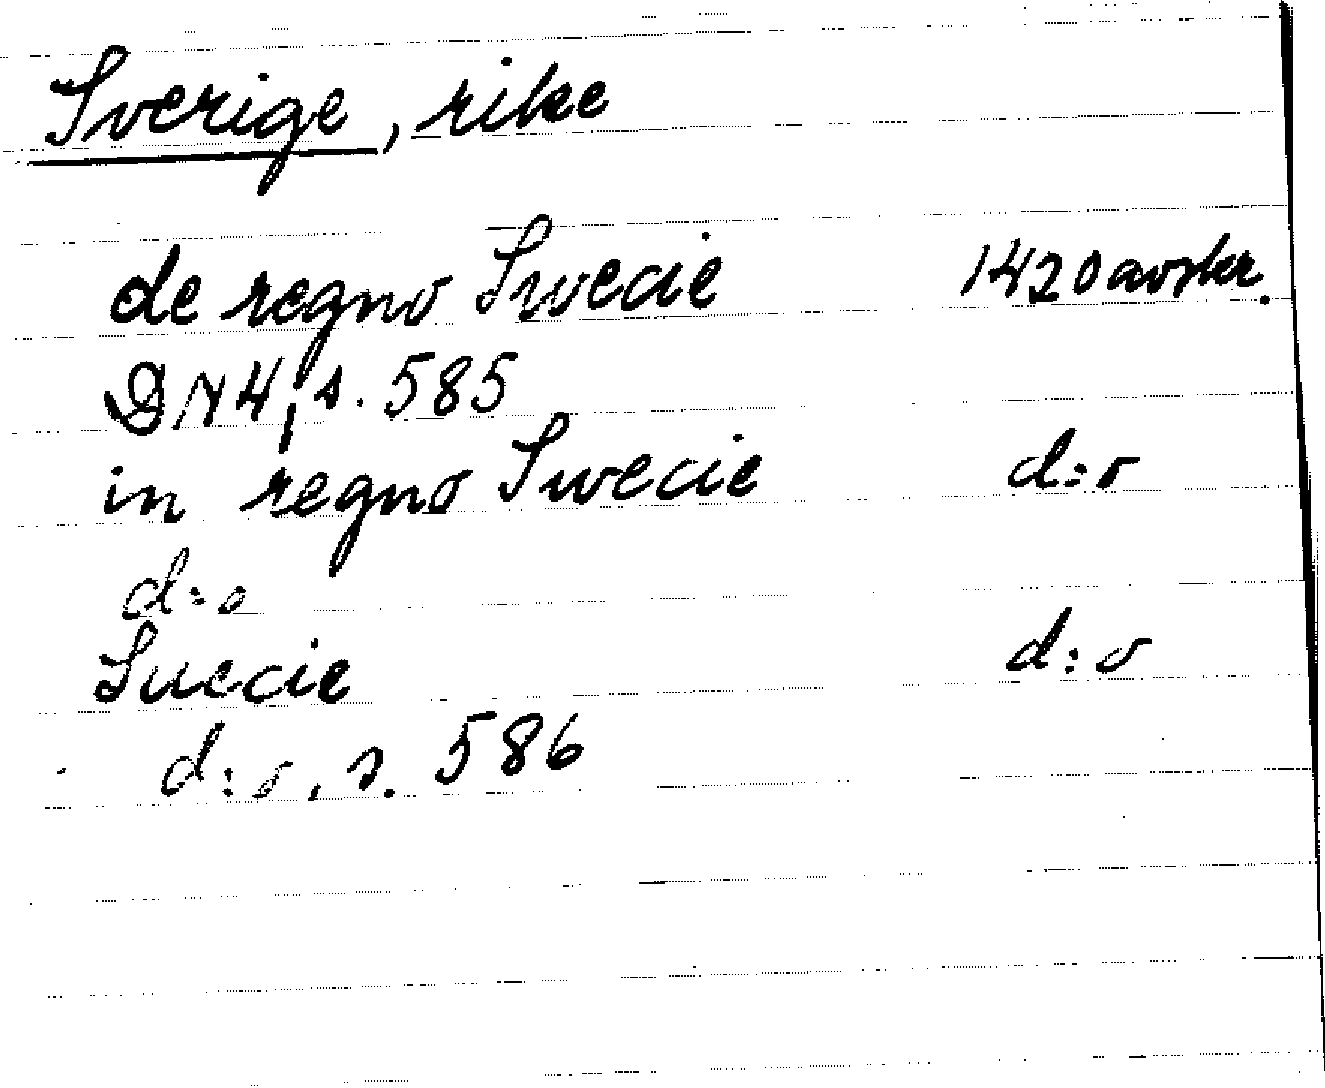 Sverige, rike
de regno Swecie 1420 avskr.
DN 4, s. 585
in regno Swecie d:o
d:o
Suecie d:o
d:o, s. 586